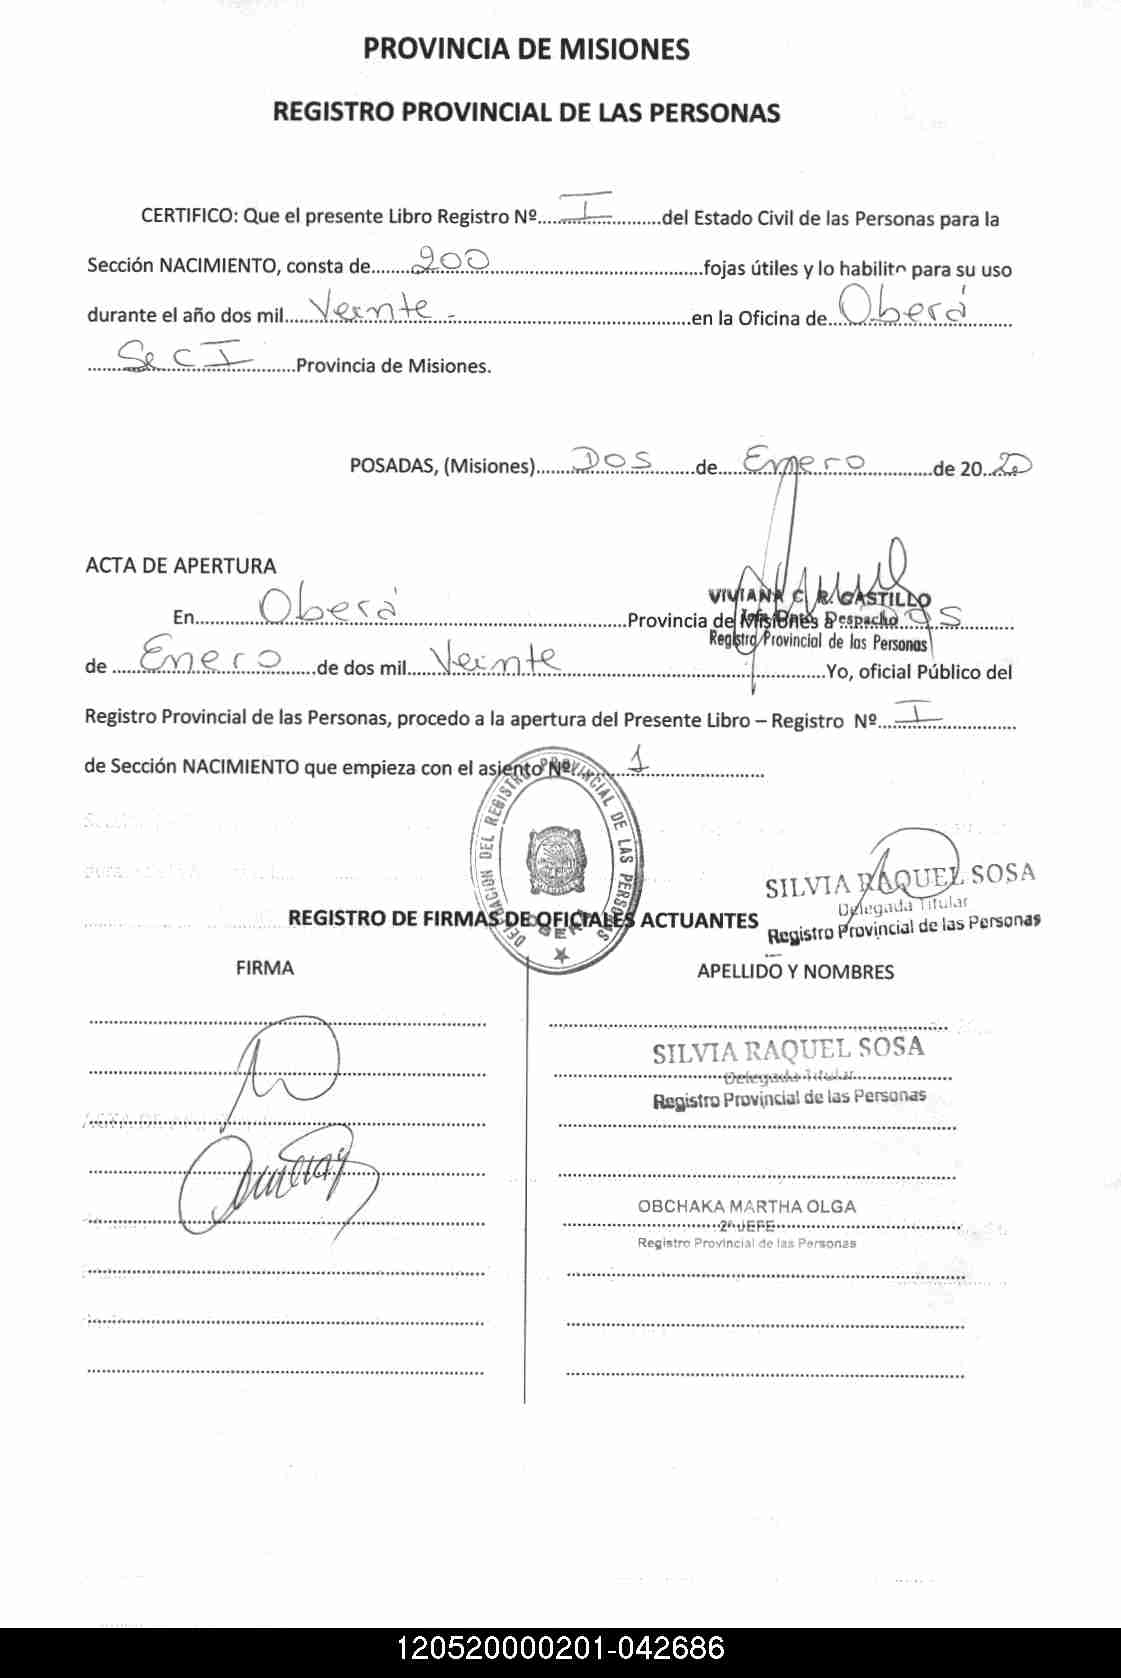 PROVINCIA DE MISIONES
REGISTRO PROVINCIAL DE LAS PERSONAS
CERTIFICO: Que el presente Libro Registro Nº.....I.....del Estado Civil de las Personas para la
Sección NACIMIENTO, consta de.....200.....fojas útiles y lo habilito para su uso
durante el año dos mil.....Veinte.-.....en la Oficina de.....Oberá.....
.....Sec I.....Provincia de Misiones.
POSADAS, (Misiones).....DOS.....de.....Enero.....de 20..20
ACTA DE APERTURA
VIVIANA C. R. CASTILLO
En.....Oberá.....Provincia de Misiones a.....DOS.....
Jefe Dpto. Despacho
Registro Provincial de las Personas
de.....Enero.....de dos mil.....Veinte.....Yo, oficial Público del
Registro Provincial de las Personas, procedo a la apertura del Presente Libro – Registro Nº.....I.....
de Sección NACIMIENTO que empieza con el asiento Nº.....1.....
DELEGACION DEL REGISTRO PROVINCIAL DE LAS PERSONAS
OBERA
SILVIA RAQUEL SOSA
Delegada Titular
Registro Provincial de las Personas
REGISTRO DE FIRMAS DE OFICIALES ACTUANTES
FIRMA APELLIDO Y NOMBRES
SILVIA RAQUEL SOSA
Delegada Titular
Registro Provincial de las Personas
OBCHAKA MARTHA OLGA
2º JEFE
Registro Provincial de las Personas
120520000201-042686